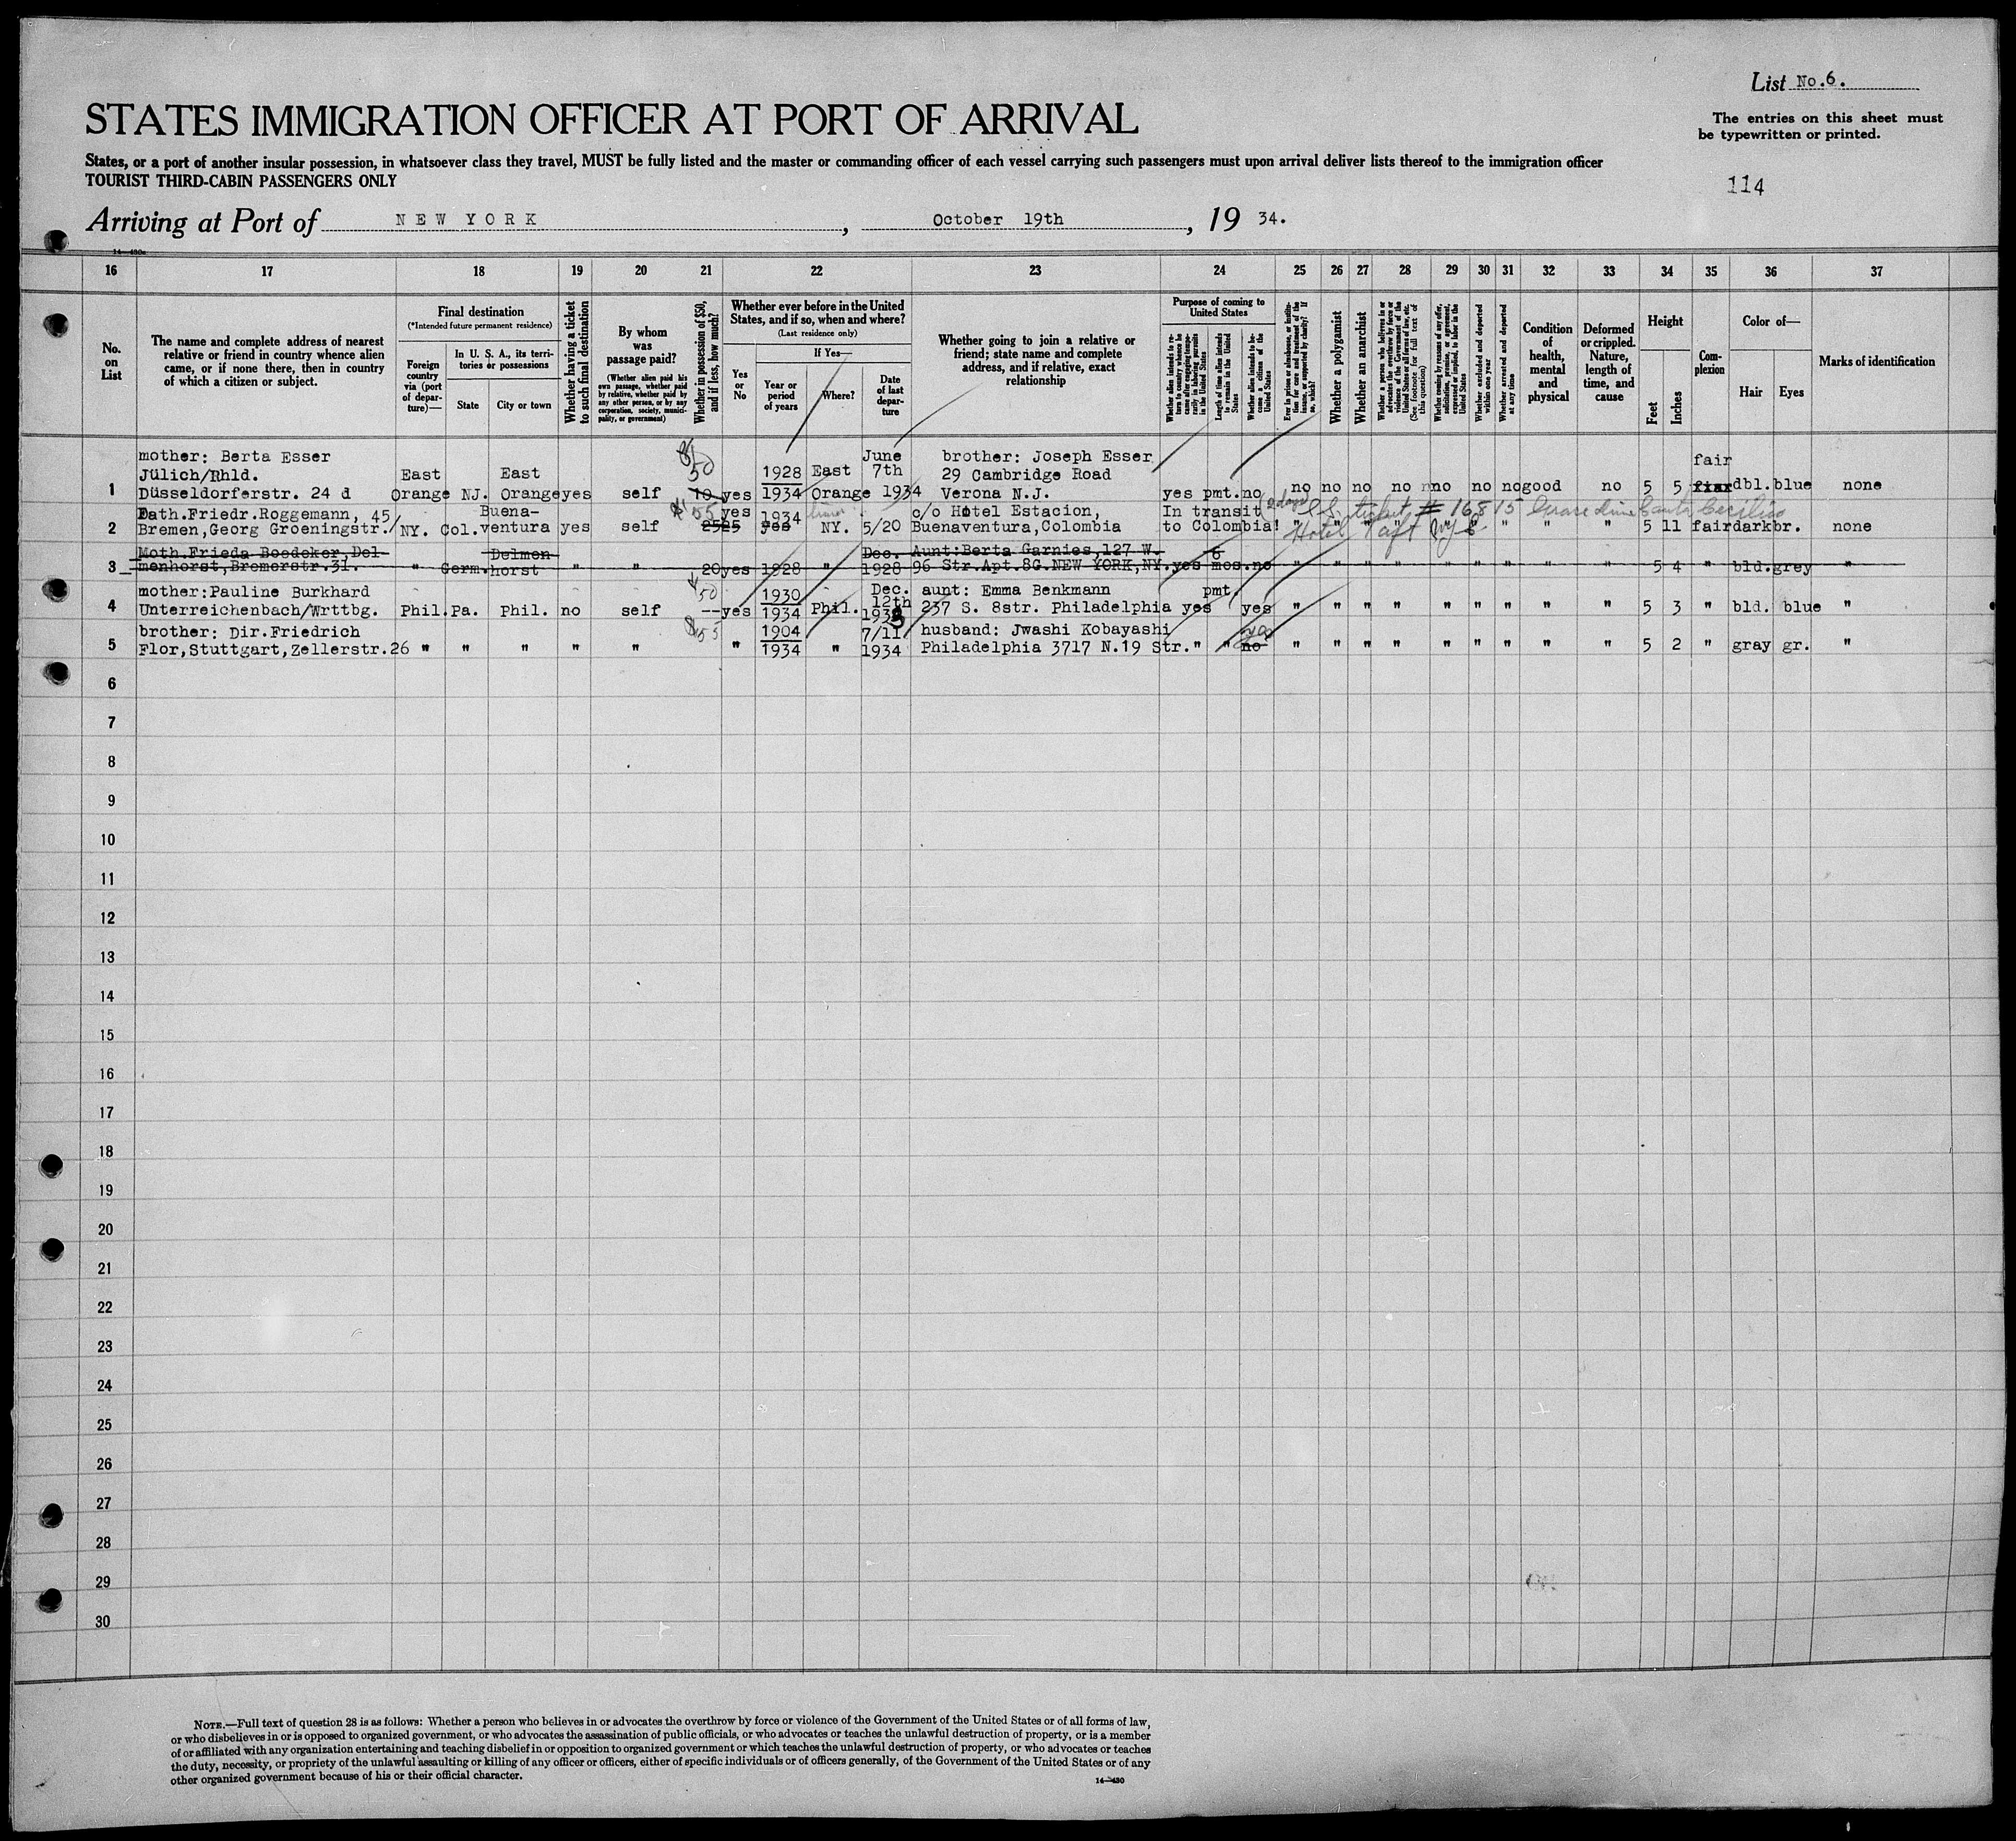 List No.6.
STATES IMMIGRATION OFFICER AT PORT OF ARRIVAL
The entries on this sheet must
be typewritten or printed.
States, or a port of another insular possession, in whatsoever class they travel, MUST be fully listed and the master or commanding officer of each vessel carrying such passengers must upon arrival deliver lists thereof to the immigration officer
TOURIST THIRD-CABIN PASSENGERS ONLY
114
Arriving at Port of NEW YORK, October 19th, 19 34.
14—480a
16 17 18 19 20 21 22 23 24 25 26 27 28 29 30 31 32 33 34 35 36 37
No. on List
The name and complete address of nearest relative or friend in country whence alien came, or if none there, then in country of which a citizen or subject.
Final destination
(*Intended future permanent residence)
Foreign country via (port of departure)—
In U. S. A., its territories or possessions
State
City or town
Whether having a ticket to such final destination
By whom was passage paid?
(Whether alien paid his own passage, whether paid by relative, whether paid by any other person, or by any corporation, society, municipality, or government)
Whether in possession of $50, and if less, how much?
Whether ever before in the United States, and if so, when and where?
(Last residence only)
Yes or No
If Yes—
Year or period of years
Where?
Date of last departure
Whether going to join a relative or friend; state name and complete address, and if relative, exact relationship
Purpose of coming to United States
Whether alien intends to return to country whence he came after engaging temporarily in laboring pursuits in the United States
Length of time alien intends to remain in the United States
Whether alien intends to become a citizen of the United States
Ever in prison or almshouse, or institution for care and treatment of the insane, or supported by charity? If so, which?
Whether a polygamist
Whether an anarchist
Whether a person who believes in or advocates the overthrow by force or violence of the Government of the United States or all forms of law, etc. (See footnote for full text of this question)
Whether coming by reasons of any offer, solicitation, promise, or agreement, expressed or implied, to labor in the United States
Whether excluded and deported within one year
Whether arrested and deported at any time
Condition of health, mental and physical
Deformed or crippled. Nature, length of time, and cause
Height
Feet
Inches
Complexion
Color of—
Hair
Eyes
Marks of identification
mother: Berta Esser June brother: Joseph Esser fair
Jülich/Rhld. East East $50 1928 East 7th 29 Cambridge Road
1 Düsseldorferstr. 24 d Orange NJ. Orange yes self 10 yes 1934 Orange 1934 Verona N.J. yes pmt. no no no no no no no no good no 5 5 fiar dbl. blue none
Fath.Friedr.Roggemann, 45/ Buena- $55 yes 1934 c/o Hotel Estacion, In transit (2 days) # 16815 Santa Cecilia
2 Bremen,Georg Groeningstr./ NY. Col. ventura yes self 2525 yes NY. 5/20 Buenaventura,Colombia to Colombia! Hotel Taft NYC " " " " " " " " " 5 11 fair dark br. none
Moth.Frieda Boedeker,Del- Delmen- Dec. Aunt:Berta Garnies,127 W. 6
3 menhorst,Bremerstr.31. " Germ. horst " " 20 yes 1928 " 1928 96 Str.Apt.8G.NEW YORK,NY. yes mos. no " " " " " " " " " 5 4 " bld. grey "
mother:Pauline Burkhard $50 1930 Dec. aunt: Emma Benkmann pmt.
4 Unterreichenbach/Wrttbg. Phil. Pa. Phil. no self -- yes 1934 Phil. 12th 1933 237 S. 8str. Philadelphia yes yes " " " " " " " " " 5 3 " bld. blue "
brother: Dir.Friedrich $55 1904 7/11 husband: Jwashi Kobayashi yes
5 Flor,Stuttgart,Zellerstr.26 " " " " " " 1934 " 1934 Philadelphia 3717 N.19 Str. " " no " " " " " " " " " 5 2 " gray gr. "
6
7
8
9
10
11
12
13
14
15
16
17
18
19
20
21
22
23
24
25
26
27
28
29
30
NOTE.—Full text of question 28 is as follows: Whether a person who believes in or advocates the overthrow by force or violence of the Government of the United States or of all forms of law,
or who disbelieves in or is opposed to organized government, or who advocates the assassination of public officials, or who advocates or teaches the unlawful destruction of property, or is a member
of or affiliated with any organization entertaining and teaching disbelief in or opposition to organized government or which teaches the unlawful destruction of property, or who advocates or teaches
the duty, necessity, or propriety of the unlawful assaulting or killing of any officer or officers, either of specific individuals or of officers generally, of the Government of the United States or of any
other organized government because of his or their official character.
14—480